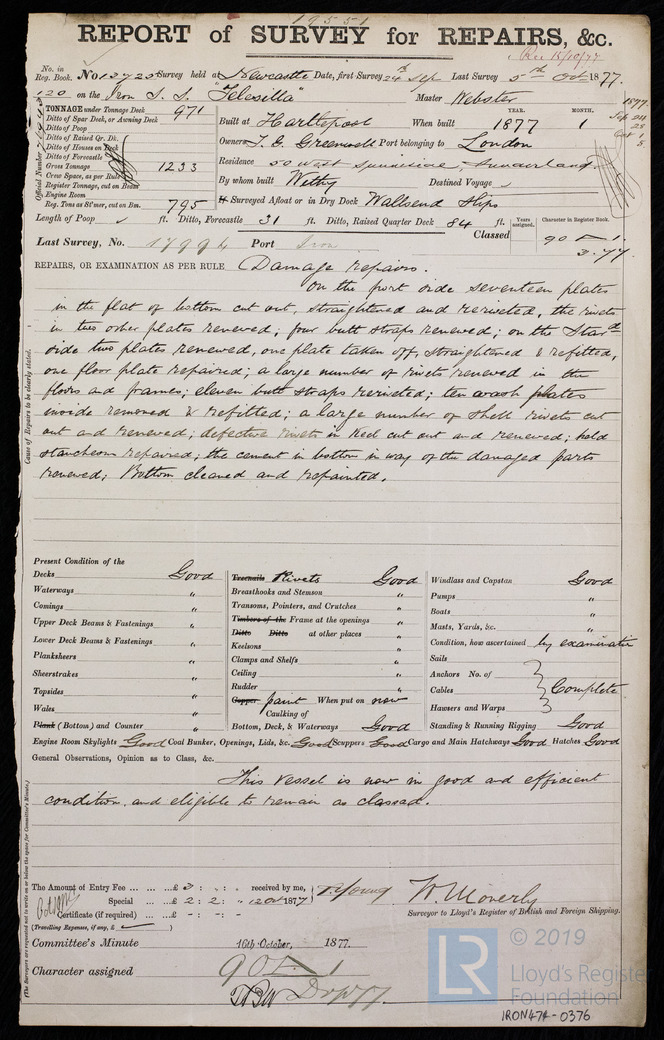 19551
REPORT of SURVEY for REPAIRS, &c.
Rec 15/10/77
No. in Reg. Book. No 13720 Survey held at Newcastle Date, first Survey 24th Sep Last Survey 5th Oct 1877.
120 on the Iron S. S. "Telesilla" Master Webster
1877
Sep 24
28
Oct 1
5
TONNAGE under Tonnage Deck 971
Ditto of Spar Deck, or Awning Deck
Ditto of Poop
Ditto of Raised Qr. Dk.
Ditto of Houses on Deck
Ditto of Forecastle
Gross Tonnage 1233
Crew Space, as per Rule
Register Tonnage, cut on Beam
Engine Room
Reg. Tons as St'mer, cut on Bm. 795
Official Number
Built at Hartlepool When built YEAR. 1877 MONTH. 1
Owners T. G. Greenwell Port belonging to London
Residence 50 West Sunniside, Sunderland
By whom built Withy Destined Voyage
If Surveyed Afloat or in Dry Dock Wallsend Slips
Length of Poop ft. Ditto, Forecastle 31 ft. Ditto, Raised Quarter Deck 84 ft.
Years assigned. Character in Register Book.
Last Survey, No. 17994 Port Iron Classed 90 A 1.
3.77
REPAIRS, OR EXAMINATION AS PER RULE Damage repairs.
On the port side seventeen plates
in the flat of bottom cut out, straightened and reriveted, the rivets
in two other plates renewed; four butt straps renewed; on the Starbd
side two plates renewed, one plate taken off, straightened & refitted,
one floor plate repaired; a large number of rivets renewed in the
floors and frames; eleven butt straps reriveted; ten wash plates
inside removed & refitted; a large number of shell rivets cut
out and renewed; defective rivets in keel cut out and renewed; hold
stancheons repaired; the cement in bottom in way of the damaged parts
renewed; Bottom cleaned and repainted.
Cause of Repairs to be clearly stated.
Present Condition of the
Decks Good
Waterways "
Comings "
Upper Deck Beams & Fastenings "
Lower Deck Beams & Fastenings "
Planksheers "
Sheerstrakes "
Topsides "
Wales "
Plank (Bottom) and Counter "
Treenails Rivets Good
Breasthooks and Stemson "
Transoms, Pointers, and Crutches "
Timbers of the Frame at the openings "
Ditto Ditto at other places "
Keelsons "
Clamps and Shelfs "
Ceiling "
Rudder "
Copper paint When put on now
Caulking of
Bottom, Deck, & Waterways Good
Windlass and Capstan Good
Pumps "
Boats "
Masts, Yards, &c. "
Condition, how ascertained by examination
Sails
Anchors No. of
Cables Complete
Hawsers and Warps
Standing & Running Rigging Good
Engine Room Skylights Good Coal Bunker, Openings, Lids, &c. Good Scuppers Good Cargo and Main Hatchways Good Hatches Good
General Observations, Opinion as to Class, &c.
This vessel is now in good and efficient
condition, and eligible to remain as classed.
(The Surveyors are requested not to write on or below the space for Committee's Minute.)
The Amount of Entry Fee ... ... ...£ 3 : - : - received by me,
Special ... ...£ 2 : 2 : " 12 Oct 1877 T. Young
Certificate (if required) ...£ - : - : -
(Travelling Expenses, if any, £ )
W Moverly
Surveyor to Lloyd's Register of British and Foreign Shipping.
Committee's Minute 16th October, 1877.
Character assigned 90 A 1
© 2019
LR
Lloyd's Register
Foundation
IRON474-0376